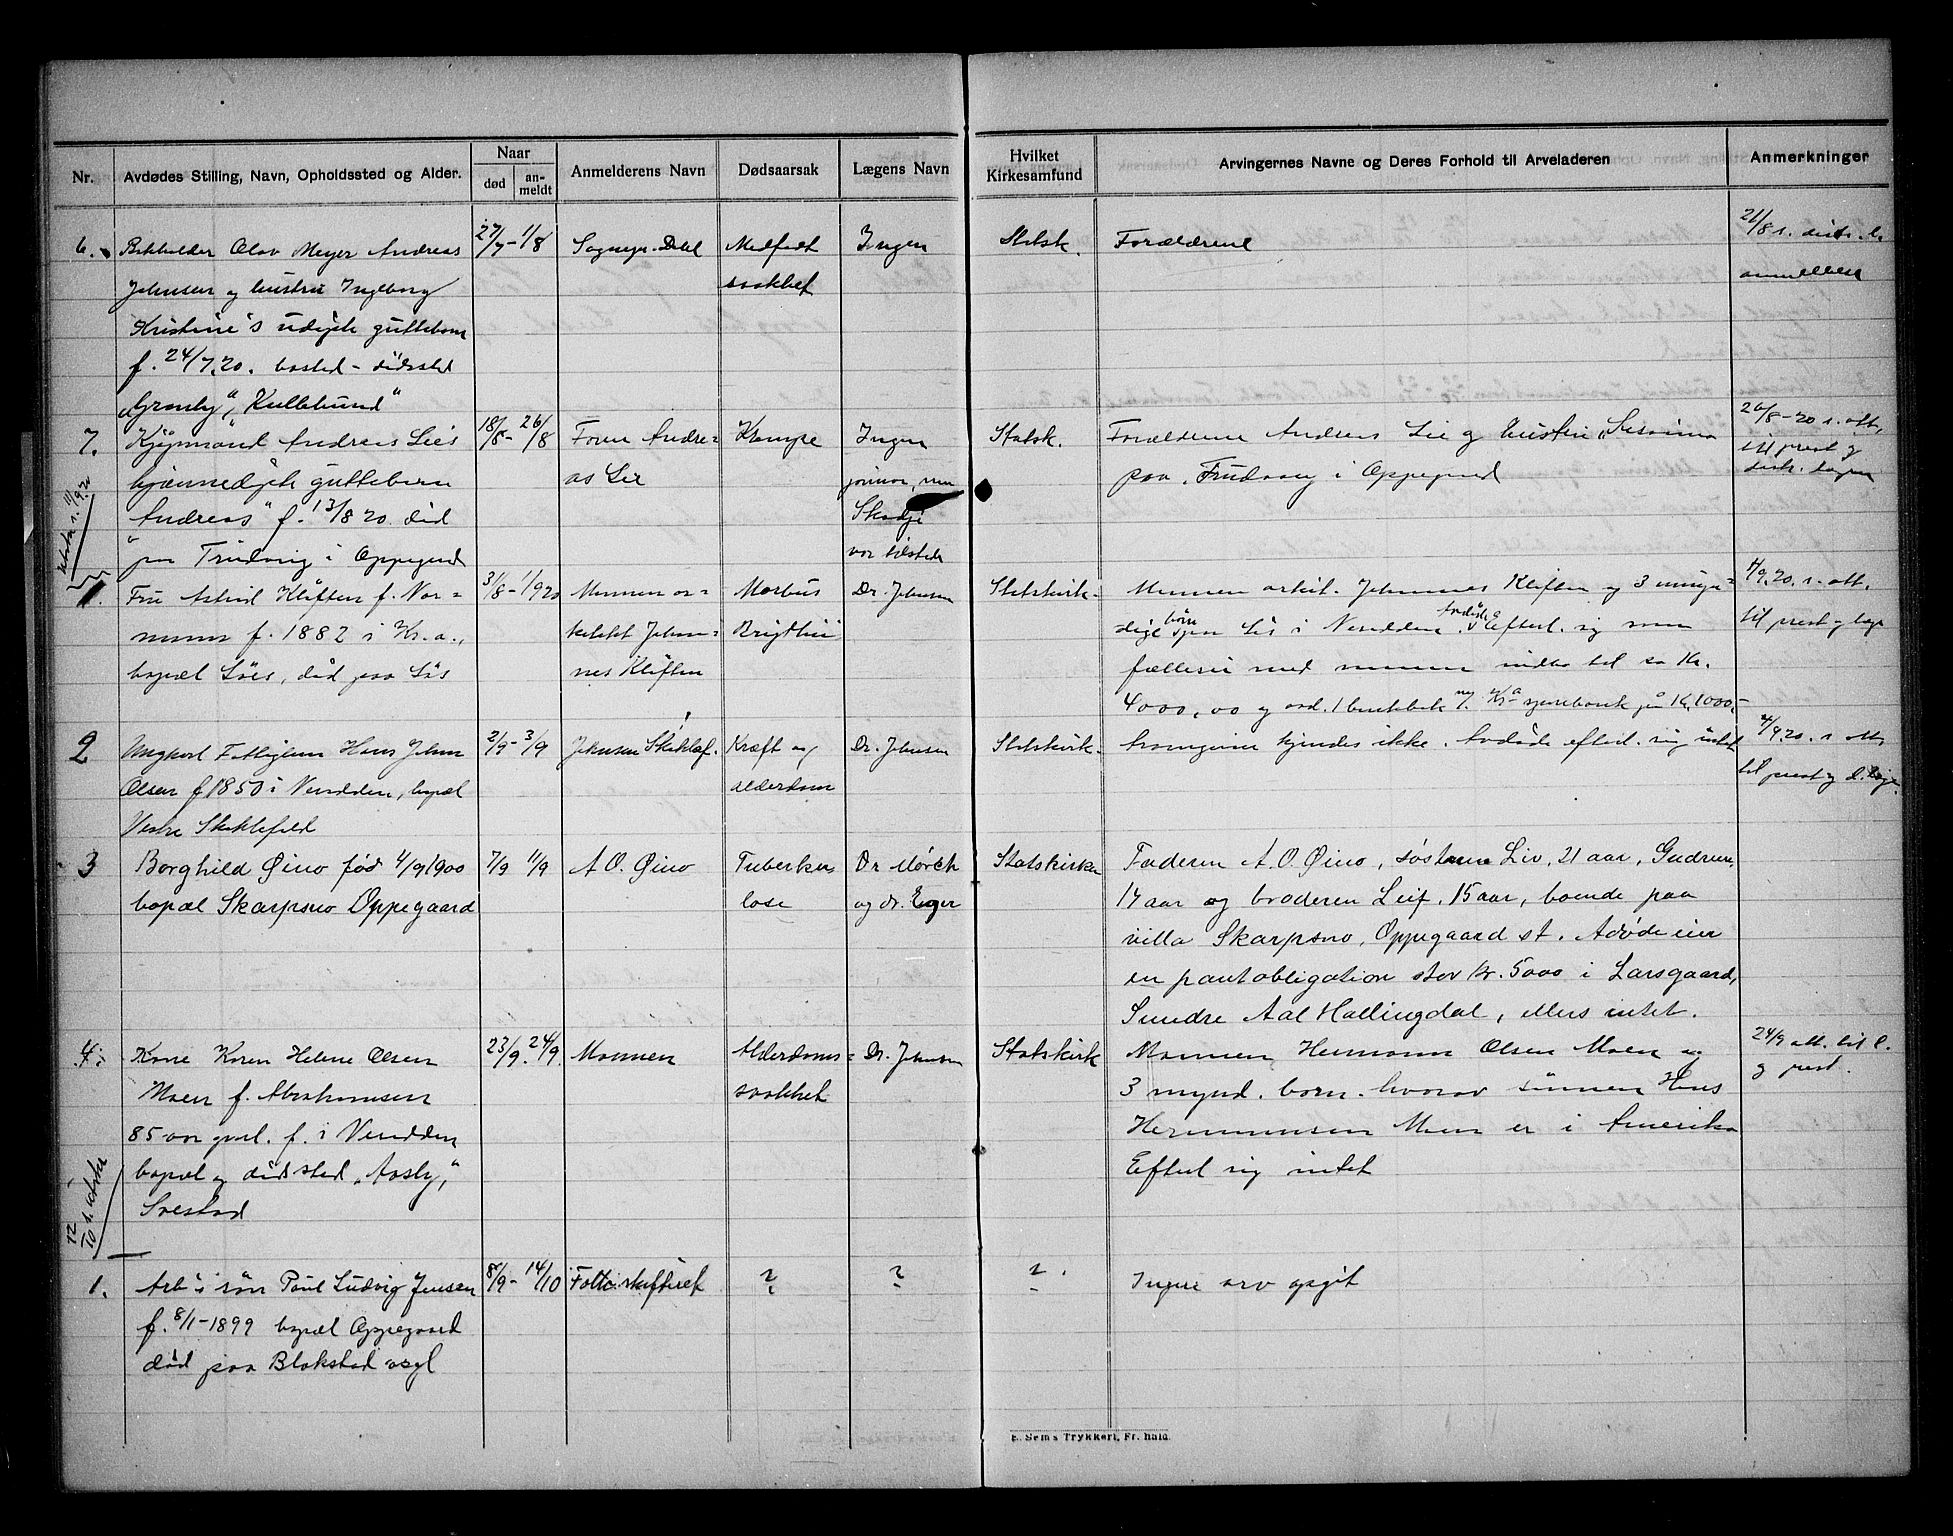 Nr.
Avdødes Stilling, Navn, Opholdssted og Alder.
Naar
død
an-
meldt
Anmelderens Navn
Dødsaarsak
Lægens Navn
Hvilket
Kirkesamfund
Arvingernes Navne og Deres Forhold til Arveladeren
Anmerkninger
6.
Olav Meyer Andreas
Johnsen og hustru Ingeborg
Kristine's udøpte guttebarn
f. 24/7.20. bosted - dødssted
"Granly", Kullebund"
27/7 - 1/8
Sognepr. Dahl
Medfødt
svakhet
Ingen
Statsk.
Forældrene
21/8 s. distr. l.
anmeldelse
7.
Kjøpmand Andreas Lie's
hjemmedøpte guttebarn
"Andreas" f. 13/8 20. død
paa Trudvang i Oppegaard
18/8 - 26/8
Faren Andre-
as Lie
Krampe
Ingen
jormor, men
Skodje
var tilstede
Statsk.
Forældrene Andreas Lie og hustru
paa Trudvang i Oppegaard
26/8-20 s. att.
til prest og
distr. lægen
1.
Fru Astrid Kliften f. Nor-
mann f. 1882 i Kr.a.,
bopæl Søis, død paa Søs
31/8 - 1/9 20
Mannen ar-
kitekt Johan-
nes Kliften
Morbus
Brigthii
Dr. Johnsen
Statskirk.
Mannen arkit. Johannes Kliften og 3 umyn-
dige børn paa Søs i Nesodden. Avdøde efterl. sig som
fælleseie med mannen indbo til ca Kr.
4000,00 og Kr.a sparebank på K. 1000,-
4/9.20. s. att.
til prest og læge
2
Ungkarl Fattiglem Hans Johan
Olsen f 1850 i Nesodden, bopæl
Vestre Skoklefald
2/9 - 3/9
Johnsen Skoklef.
Kræft og
alderdom
Dr. Johnsen
Statskirk.
Arvinger kjendes ikke. Avdøde efterl. sig intet
4/9.20. s. att.
til prest og d. læge.
3
Borghild Øino fød 4/9 1900
bopæl Skarpsno Oppegaard
7/9 11/9
A O. Øino
Tuberku
lose
Dr Mørch
og dr. Eger
Statskirken
Faderen A. O. Øino, søstrene Liv, 21 aar, Gudrun,
17 aar og broderen Leif. 15 aar, boende paa
villa Skarpsno, Oppegaard st. Avdøde eier
en pantobligation stor kr. 5000 i Larsgaard,
Sundre Aal Hallingdal, ellers intet.
4.
Kone Karen Helene Olsen
Moen f. Abrahamsen
85 aar gml. f. i Nesodden
bopæl og dødssted "Aasly",
Svestad
23/9. 24/9.
Mannen
Alderdoms-
svakhet
Dr. Johnsen
Statskirk
Mannen Hermann Olsen Moen og
3 mynd. børn. hvorav sønnen Hans
Hermansen Moen er i Amerika
Efterl sig intet
24/9 att. til l.
og prest.
1.
Arb's søn Paul Ludvig Jensen
f. 8/1-1899 bopæl Oppegaard
død paa Blakstad asyl
8/9 - 14/10
Follo skifteret
?
?
?
Ingen arv opgit
E. Sems Trykkeri, Fr.hald.